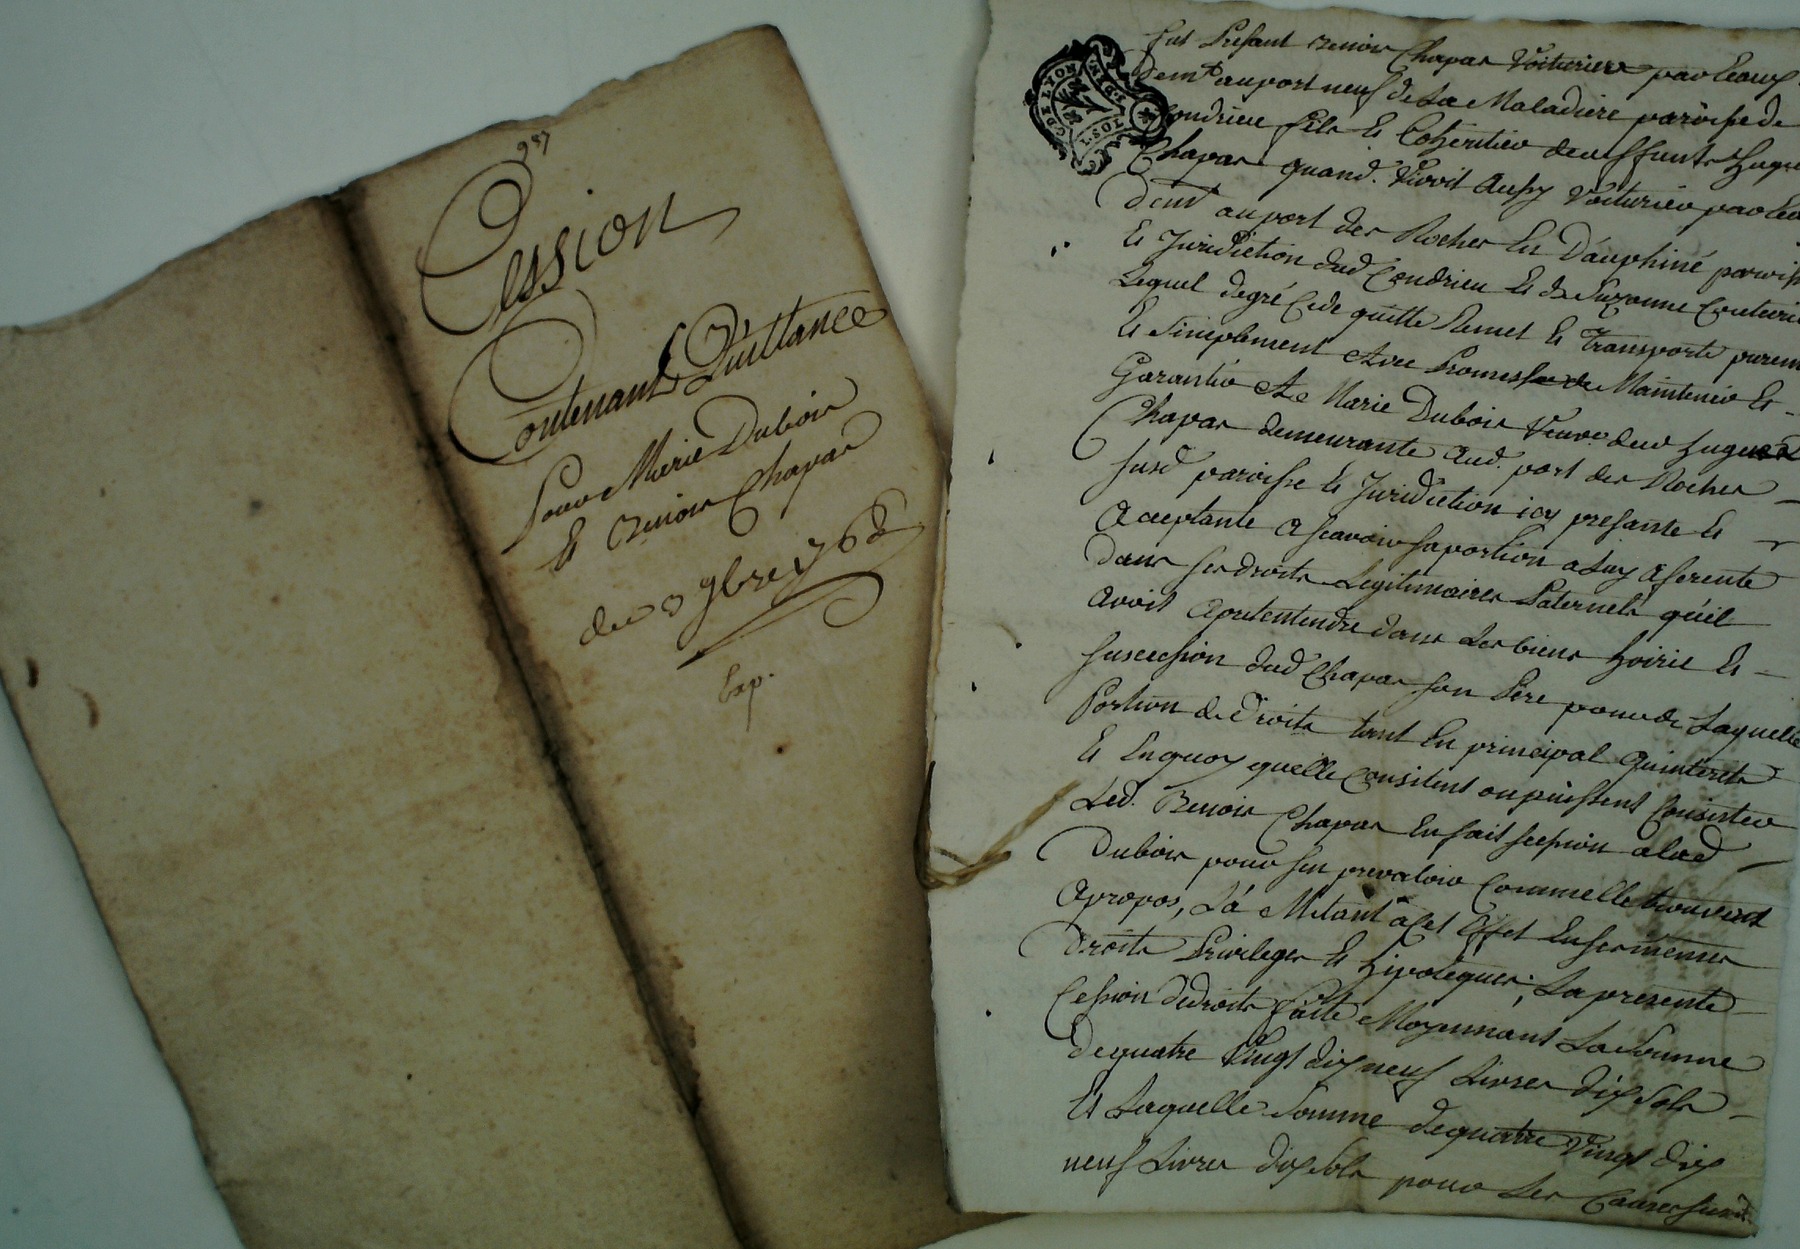 Cession
Contenant Quittance
Pour Marie Dubois
Et Benoir Chapas
du 3 9bre 1768
Exp.
G. DE LYON
Fut Presant Benoir Chapas Voiturier par Eaux
demt au port neuf de La Maladiere paroisse de
Condrieu fils Et Coheritier de deffunt Hugue
Chapas quand. Vivoit Aussy Voiturier par Eau
demt au port des Roches En Dauphiné paroisse
Et Juridiction dud Condrieu Et de Suzanne Couturie
Lequel degré Cede quitte Remet Et Transporte purem
Et Simplement Avec Promesse de Maintenir Et
Garantir A Marie Dubois Veuve dud Hugues
Chapas demeurante Aud. port des Roches
susd paroisse Et Juridiction icy presante Et
Acceptante Ascavoir sa portion a Luy Aferente
dans ses droits Legitimaires Paternels qu'il
avoit Apretentendre dans Les biens hoirie Et
succession dud Chapas son Pere pour de Laquelle
Portion de droits tant En principal quinterets
Et Enquoy quelle Consitent ou puissent Consister
Led. Benoir Chapas En fait cession alad
Dubois pour sen prevaloir Comme elle trouvera
Apropos, La Mettant a cet Effet En ses memes
droits Privileges Et hipoteques, La presente
Cession de droits faite Moyennant La Somme
de quatre Vingt dix neuf Livres dix sols
Et Laquelle Somme de quatre Vingt dix
neuf Livres dix sols pour Les Causes susd.